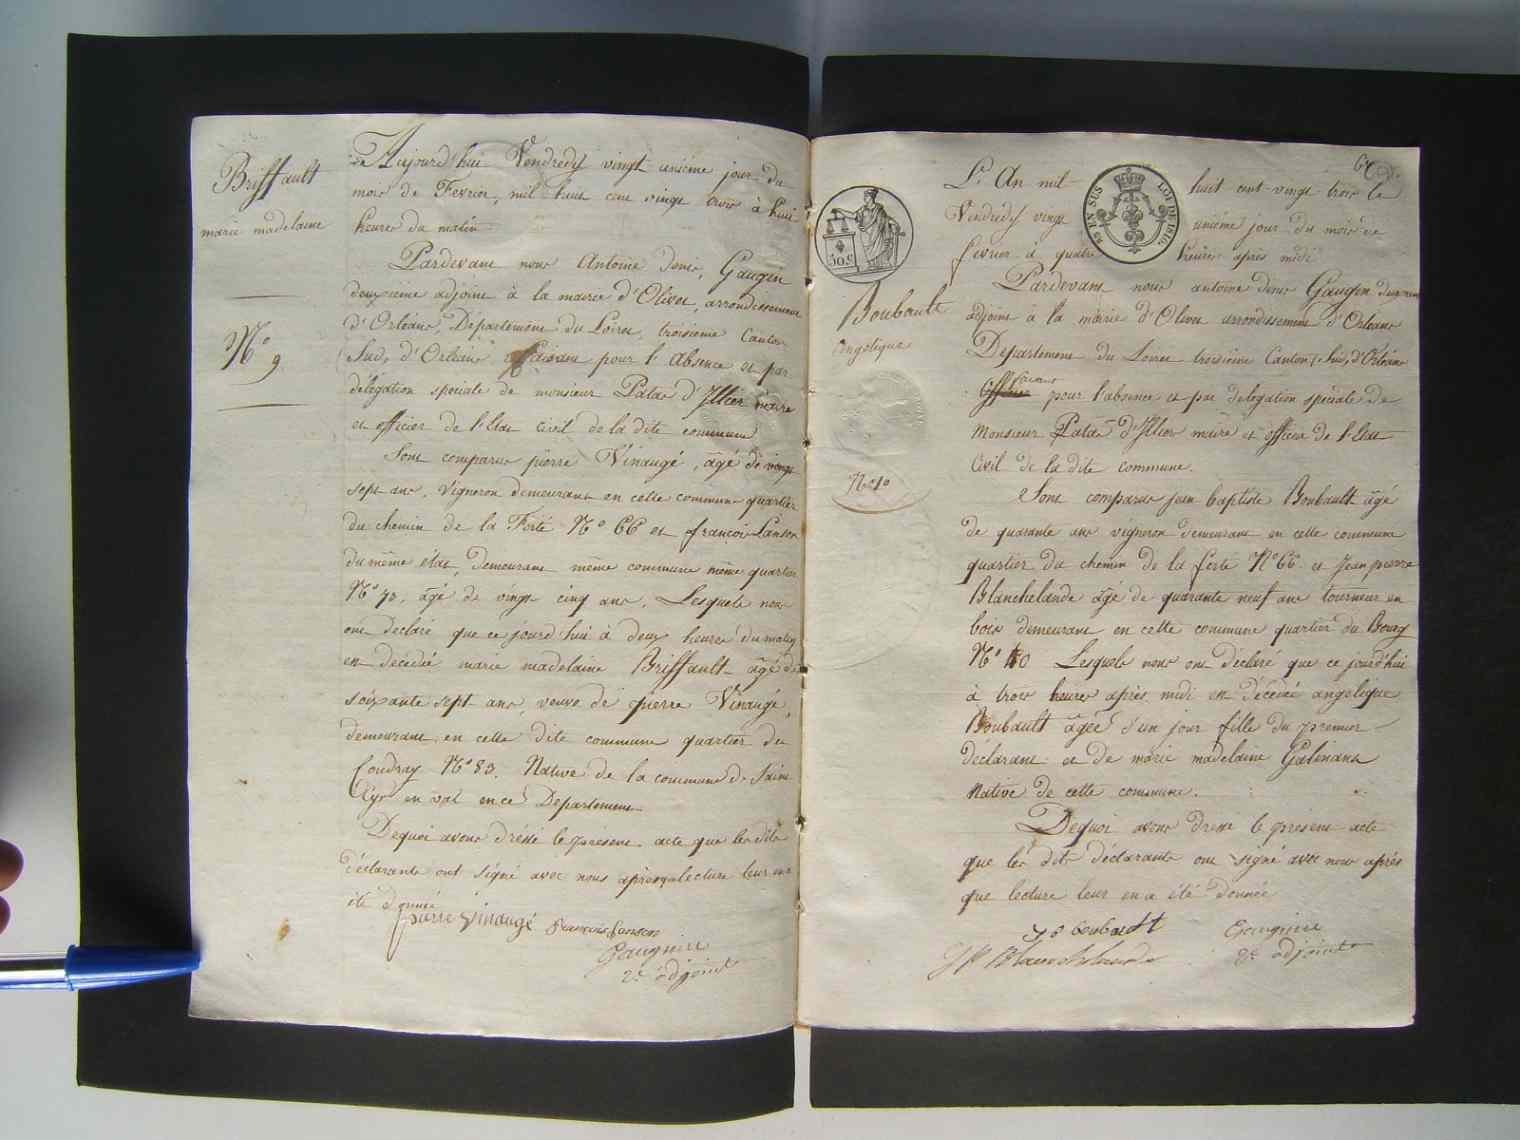 Briffault
marie madelaine
N.º 9
Aujourd'hui Vendredy vingt unième jour du
mois de Fevrier, mil huit cent vingt trois à huit
heures du matin
Pardevant nous Antoine Denis, Gaugein
deuxieme adjoint à la mairie d'Olivet, arrondissement
d'Orléans, Département du Loiret, troisieme Canton
Sud, d'Orléans faisant pour l'Absence et par
délégation speciale de monsieur Patas d'Illier maire
et officier de l'Etat Civil de la dite commune
Sont comparus pierre Vinaugé, âgé de vingt
sept ans, Vigneron demeurant en cette commune quartier
du chemin de la Ferté N.º 66 et françois Lanson
du même état, demeurant même commune même quartier
N.º 70, âgé de vingt cinq ans, Lesquels nous
ont declaré que ce jourd'hui à deux heures du matin
est decedée marie madelaine Briffault âgé de
soixante sept ans, veuve de pierre Vinaugé,
demeurant en cette dite commune quartier du
Coudray N.º 83. Native de la commune de Saint
Cyr en val en ce Departement
Dequoi avons dressé le présent acte que les dits
déclarants ont signé avec nous après que lecture leur en a
été donnée
pierre Vinaugé françois Lanson
Gaugein
2e adjoint
15 EN SUS LOI DE 1816.
50. C
L'An mil huit cent vingt trois le
Vendredy vingt unième jour du mois de
fevrier à quatre heures après midi
Boubault
Angelique
N.º 10
Pardevant nous antoine Denis Gaugein deuxieme
adjoint à la mairie d'Olivet arrondissement d'Orleans
Departement du Loiret troisieme Canton (Sud) d'Orléans
faisant
pour l'absence et par delegation speciale de
Monsieur Patas d'Illier maire et officier de l'Etat
Civil de la dite commune.
Sont comparus jean baptiste Boubault âgé
de quarante ans vigneron demeurant en cette commune
quartier du chemin de la ferté N.º 66 et Jean pierre
Blanchelande âgé de quarante neuf ans tourneur en
bois demeurant en cette commune quartier du Bourg
N.º 40 Lesquels nous ont déclaré que ce jourd'hui
à trois heures après midi est décédée angelique
Boubault âgée d'un jour fille du premier
déclarant et de marie madelaine Galinand
Native de cette commune.
Dequoi avons dressé le present acte
que les dits déclarants ont signé avec nous après
que lecture leur en a été donnée
J B boubault Gaugein
J P Blanchelande 2e adjoint